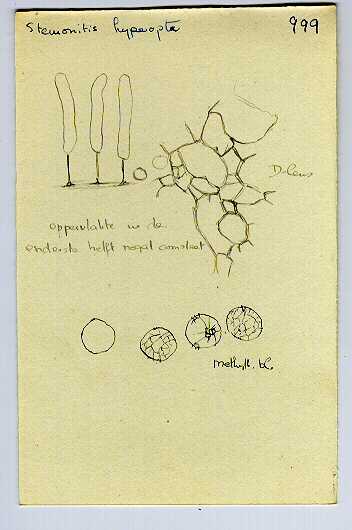 Stemonitis hyperopta 999
D-lens
oppervlakte in de
onderste helft nogal complect
Methylb. bl.